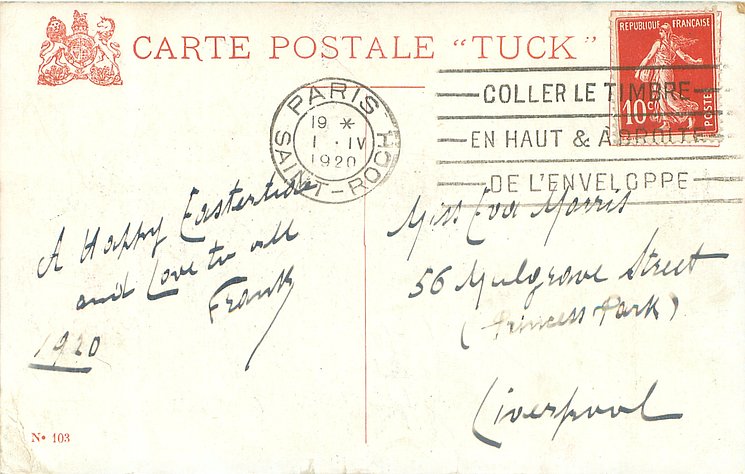 CARTE POSTALE "TUCK"
RÉPUBLIQUE FRANÇAISE
10 c.
POSTE
PARIS
19 *
1 · IV
1920
SAINT-ROCH
COLLER LE TIMBRE
EN HAUT & À DROITE
DE L'ENVELOPPE
A Happy Eastertide
and Love to all
Frank
1920
Miss Eva Morris
56 Mulgrave Street
(Princess Park)
Liverpool
N• 103